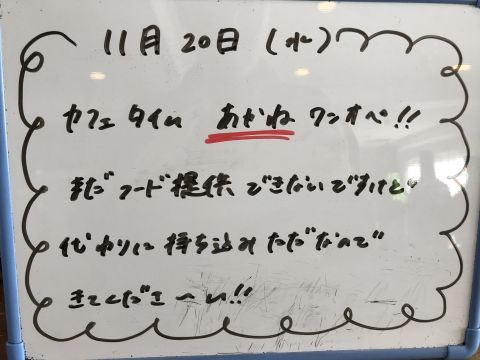 11月20日(水)
カフェタイム あかね ワンオペ!!
まだフード提供できないですけど
代わりに持ち込みただなので
きてくださーい!!